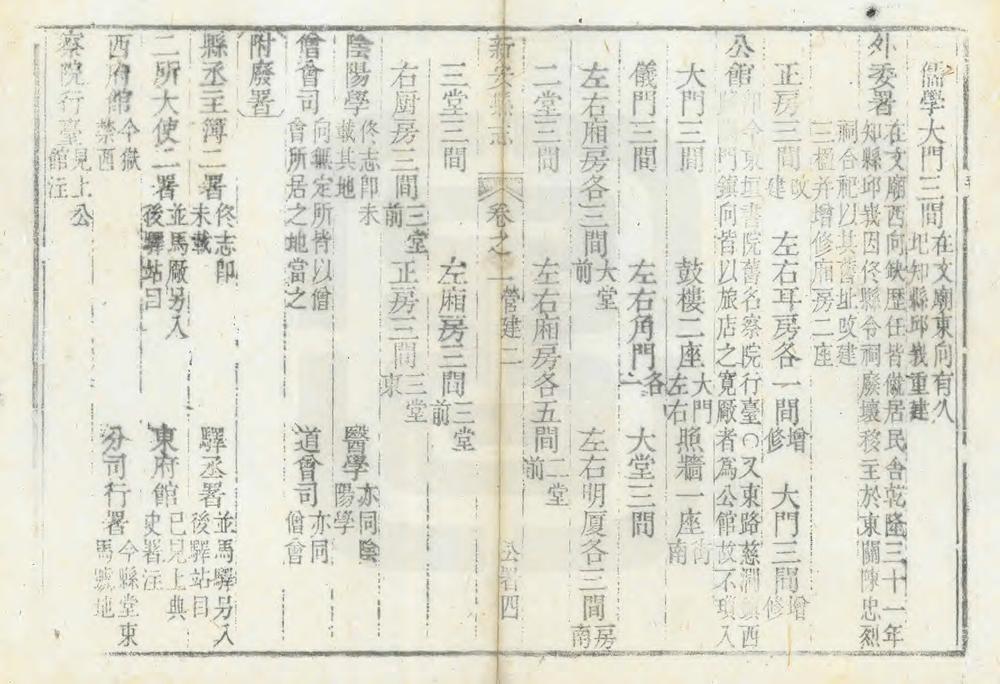 儒學大門三間在文廟東向有久圮知縣邱峩重建
外委署在文廟西向缺歷任皆僦居民舍乾隆三十一年知縣邱峩因佟縣令祠廢壞移主於東關陳忠烈祠合祀以其舊址改建三楹并增修廂房二座
正房三間改建 左右耳房各一間增修 大門三間增修
公館卽今東垣書院舊名察院行臺○又東路慈澗鎮西路門鎮向皆以旅店之寬厰者為公館故不瑣入
大門三間 鼓樓二座大門左右 照牆一座街南
儀門三間 左右角門各一 大堂三間
左右廂房各三間大堂前 左右明厦各三間房南
二堂三間 左右廂房各五間二堂前
新安縣志 卷之二 營建二 公署四
三堂三間 左廂房三間三堂前
右厨房三間三堂前 正房三間三堂東
陰陽學佟志卽未載其地 醫學亦同陰陽學
僧會司向無定所皆以僧會所居之地當之 道會司亦同僧會
附廢署
縣丞主簿二署佟志卽未載 驛丞署並馬驛另入後驛站目
二所大使二署並馬厰另入後驛站目 東府館已見上典史署注
西府館今獄禁西 分司行署今縣堂東馬號地
察院行臺見上公館注